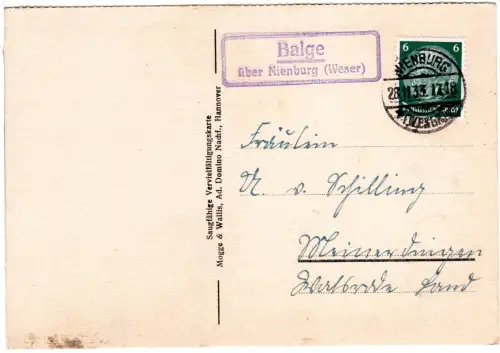 Balge
über Nienburg (Weser)
6 6
NIENBURG
28.11.33. 17-18
(WESER)
Saugfähige Vervielfältigungskarte
Mogge & Wallis, Ad. Domino Nachf., Hannover
Fräulein
A. v. Schilling
Meinerdingen
Walsrode Land